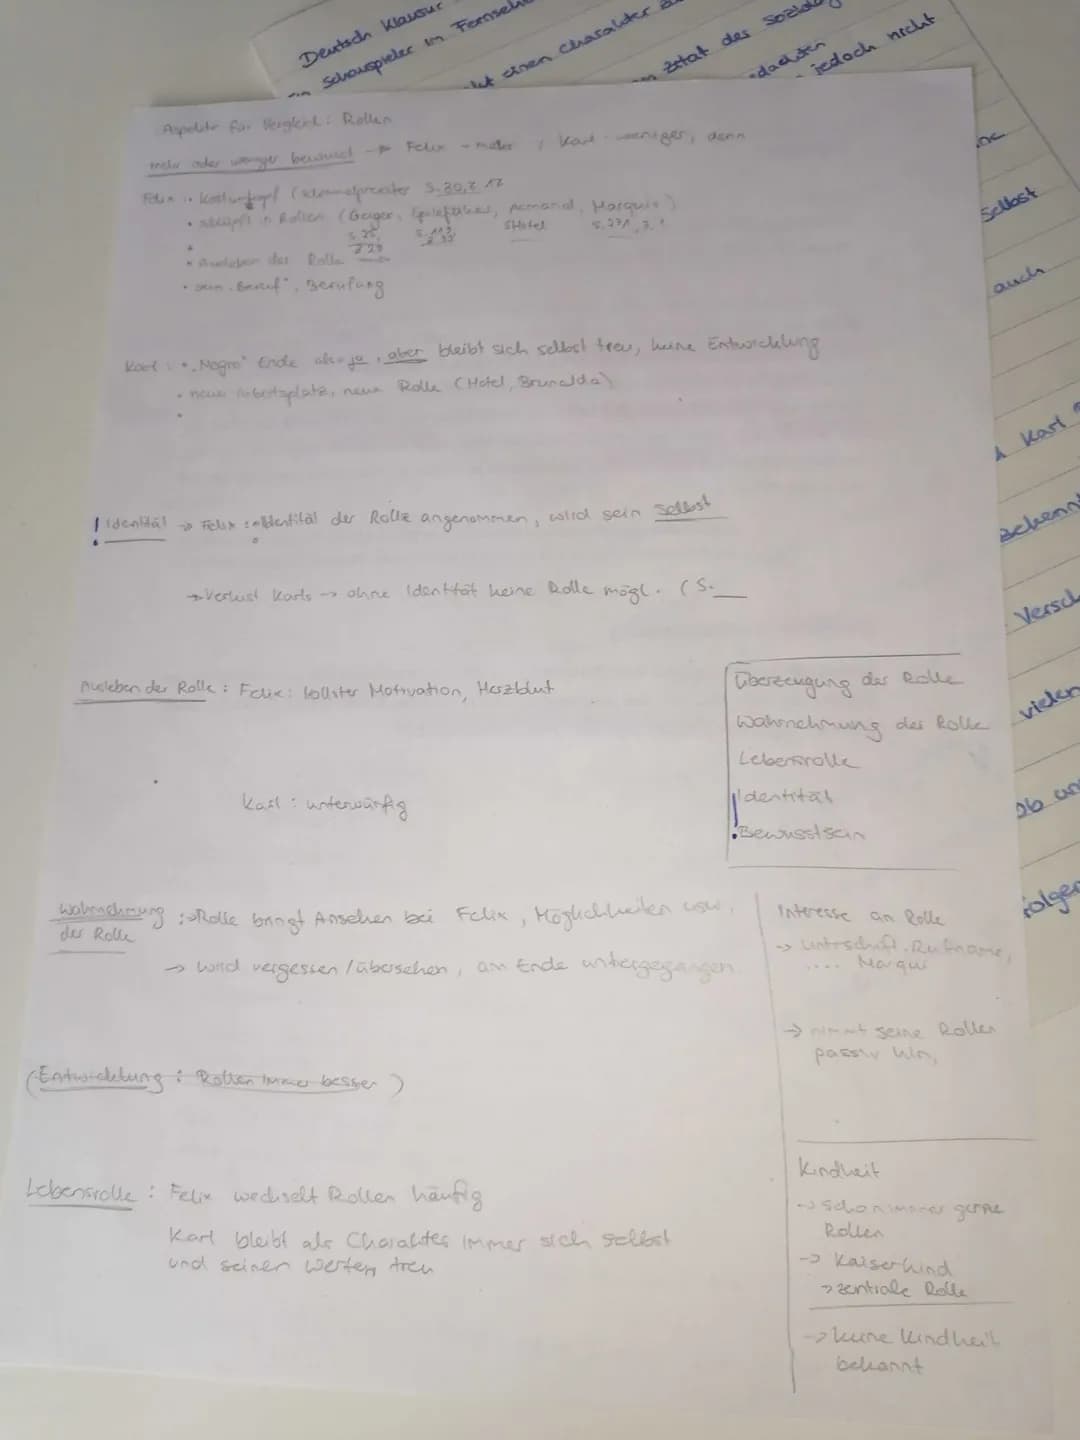 Deutsch Klausur
Schauspieler im
einen Charakter
Zitat des
jedoch nicht
Selbst
auch
Karl
vielen
Aspekte für Vergleich: Rollen
mehr oder weniger bewusst → Felix - mehr / Karl - weniger, denn
Felix: • Kostümkopf (
• schlüpft in Rollen (Geiger, Epileptiker, Armand, Marquis)
S. 25,
Z 29
S. 113,
SHotel
• Ausleben der Rolle
• sein "Beruf", Berufung
Karl: • "Negro" Ende also ja, aber bleibt sich selbst treu, keine Entwicklung
• neuer Arbeitsplatz, neue Rolle (Hotel, Brunelda)
! Identität → Felix: Identität der Rolle angenommen, wird sein Selbst
→ Verlust Karls → ohne Identität keine Rolle mögl. (S.__
Ausleben der Rolle: Felix: vollster Motivation, Herzblut
Karl: unterwürfig
Überzeugung der Rolle
Wahrnehmung der Rolle
Lebensrolle
! Identität
Bewusstsein
Wahrnehmung
der Rolle
: Rolle bringt Ansehen bei Felix, Möglichkeiten usw.
→ wird vergessen / übersehen, am Ende untergegangen
Interesse an Rolle
→ Unterschrift, Rufname,
.... Marqui
→ nimmt seine Rollen
passiv hin,
(Entwicklung: Rollen immer besser)
Lebensrolle: Felix wechselt Rollen häufig
Karl bleibt als Charakter immer sich selbst
und seinen Werten treu
Kindheit
→ schon immer gerne
Rollen
→ Kaiserkind
→ zentrale Rolle
→ keine Kindheit
bekannt